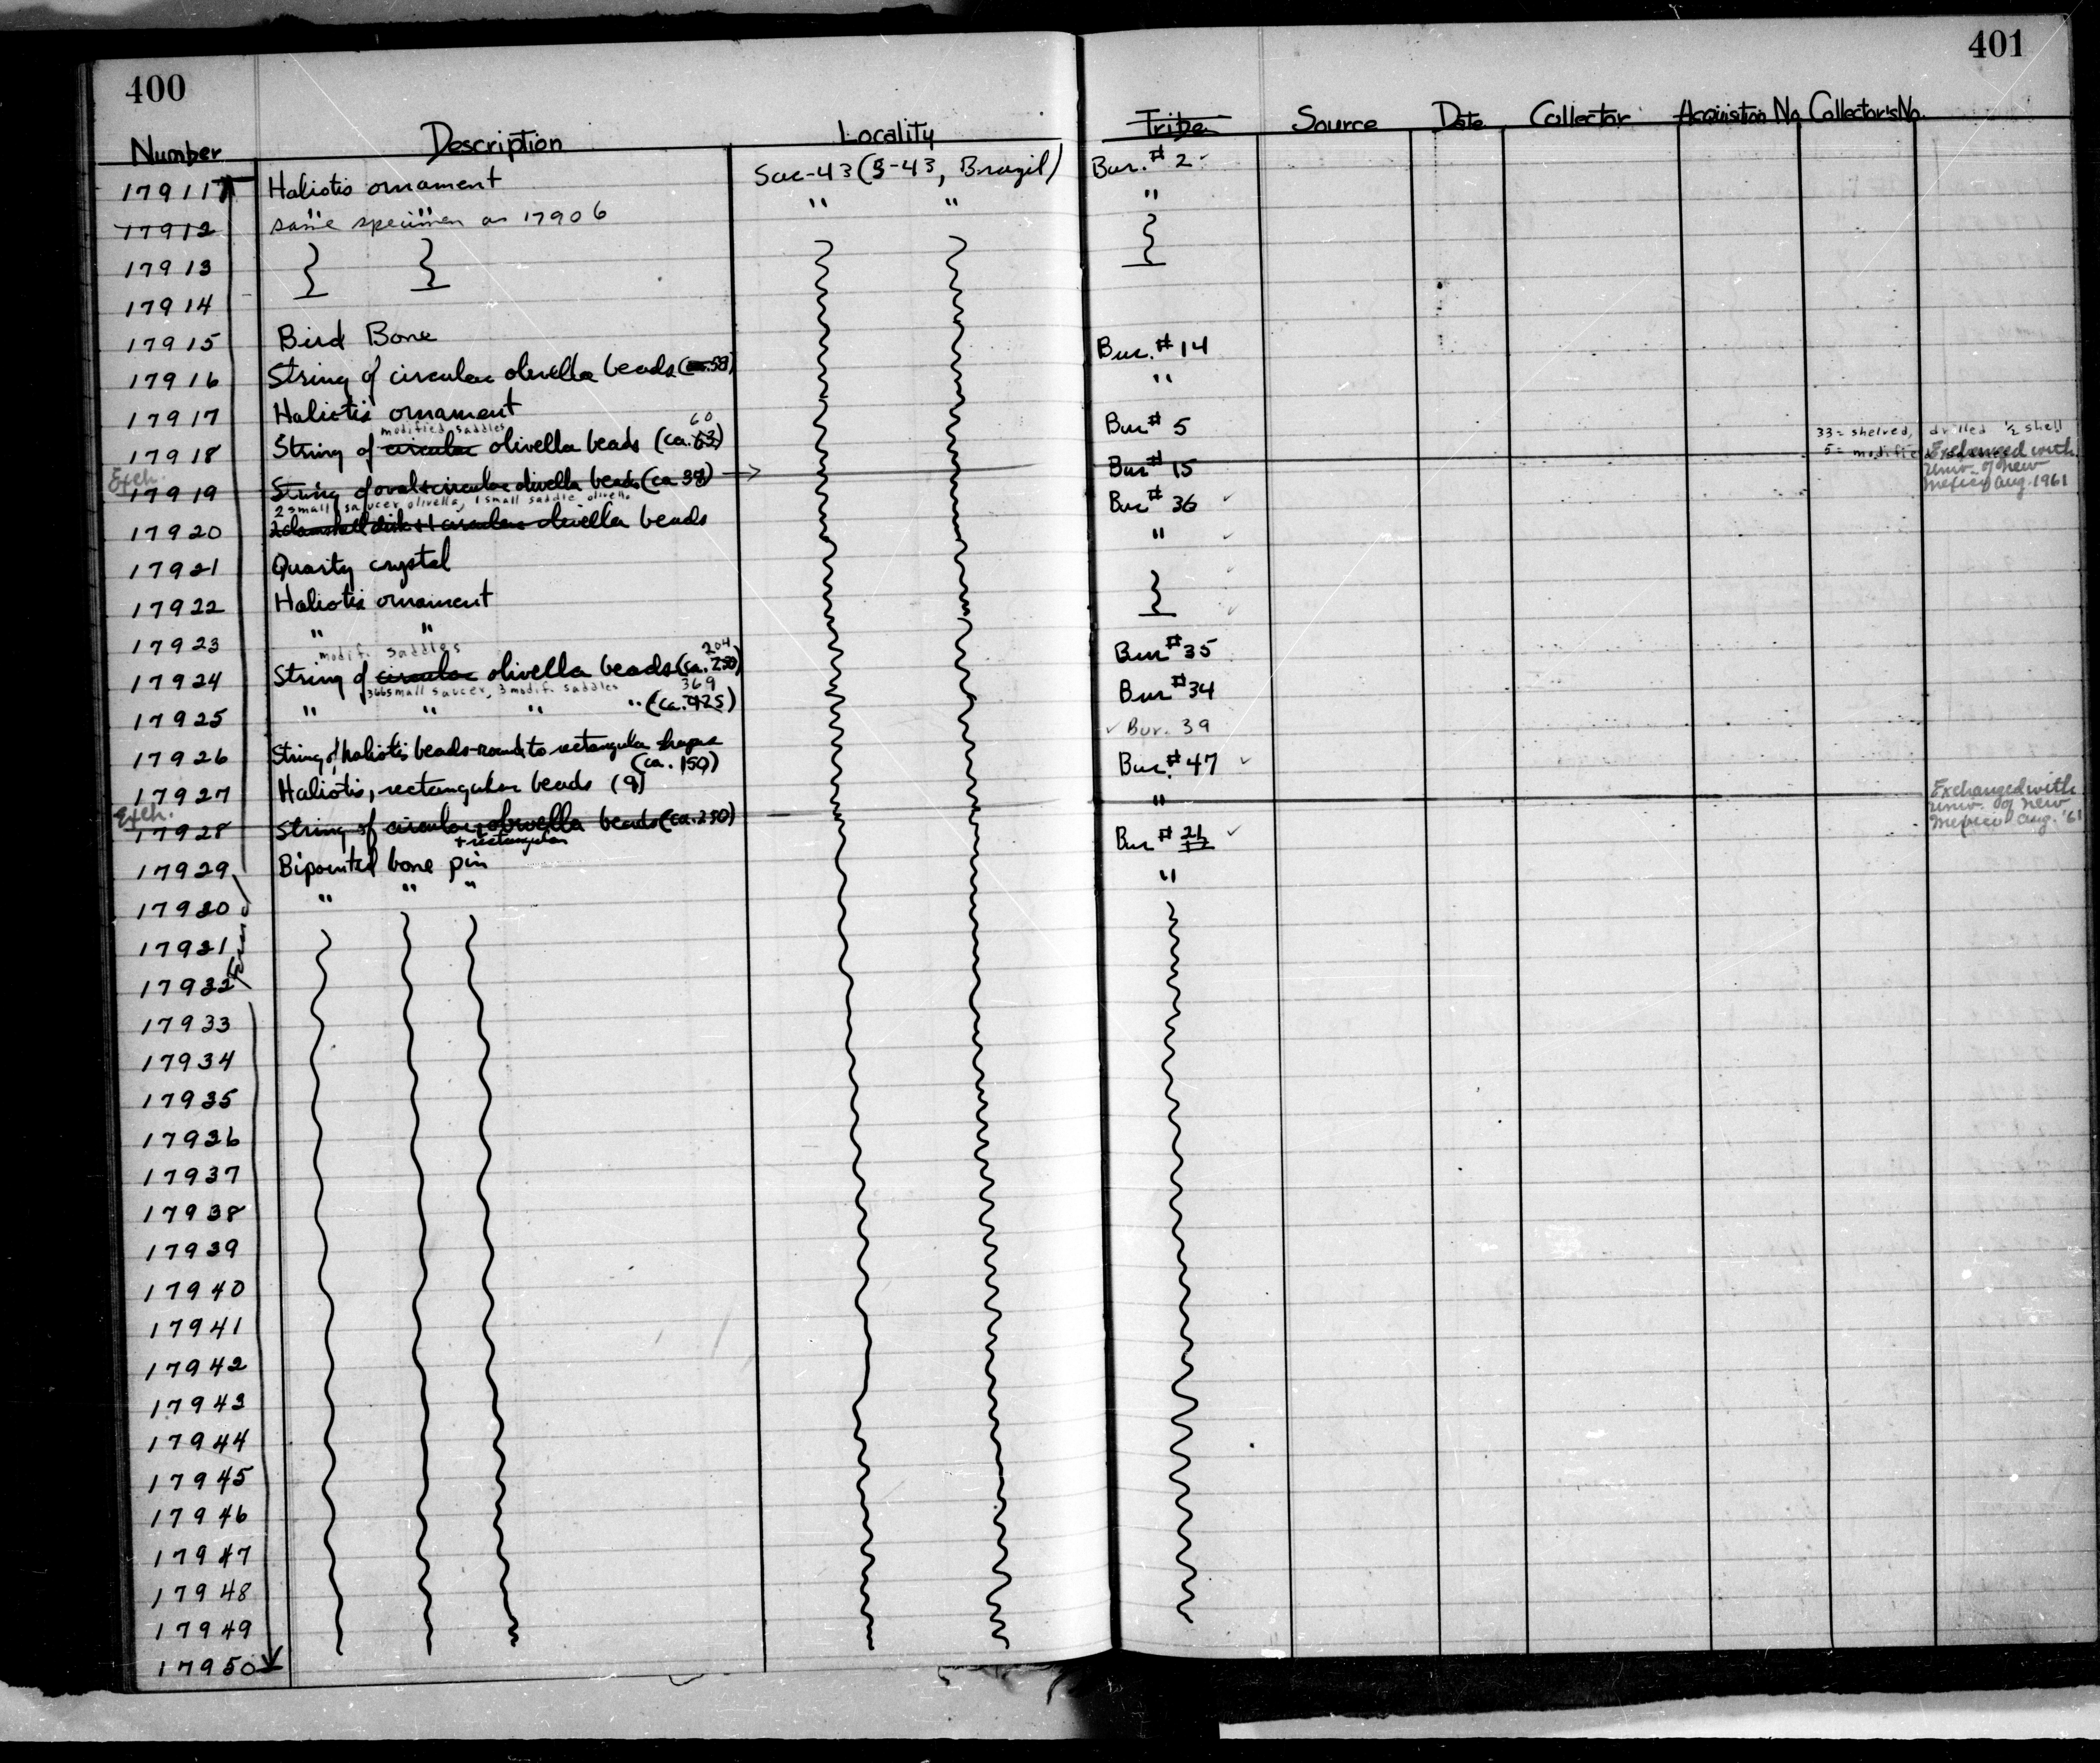 400
401
Number Description Locality Tribe Source Date Collector Acquisition No. Collector's No.
17911 Haliotis ornament Sac-43 (S-43, Brazil) Bur. # 2
17912 " " " " "
same specimen as 17906
17913
17914
17915 Bird Bone Bur. # 14
17916 String of circular olivella beads (ca. 58) "
17917 Haliotis ornament Bur # 5
modified saddles 60
17918 String of circular olivella beads (ca. 63) Bur # 15
33 = shelved, drilled ½ shell
5 = modified
Exch.
17919 String of oval + circular olivella beads (ca 38) Bur # 36 Exchanged with Univ. of New Mexico Aug. 1961
2 small saucer olivella, 1 small saddle olivella
17920 2 clamshell disk + 1 circular olivella beads "
17921 Quartz crystal
17922 Haliotis ornament
17923 " " Bur # 35
modif. saddles 204
17924 String of circular olivella beads (ca. 250) Bur # 34
366 small saucer, 3 modif. saddles 369
17925 " " " " (ca. 425) Bur. 39
17926 String of haliotis beads - round to rectangular shape (ca. 150) Bur. # 47
17927 Haliotis, rectangular beads (9) "
Exch.
17928 String of circular + olivella beads (ca. 250) Bur # 21 Exchanged with Univ. of New Mexico Aug. '61
+ rectangular
17929 Bipointed bone pin "
17930 " " "
17931
17932
17933
17934
17935
17936
17937
17938
17939
17940
17941
17942
17943
17944
17945
17946
17947
17948
17949
17950